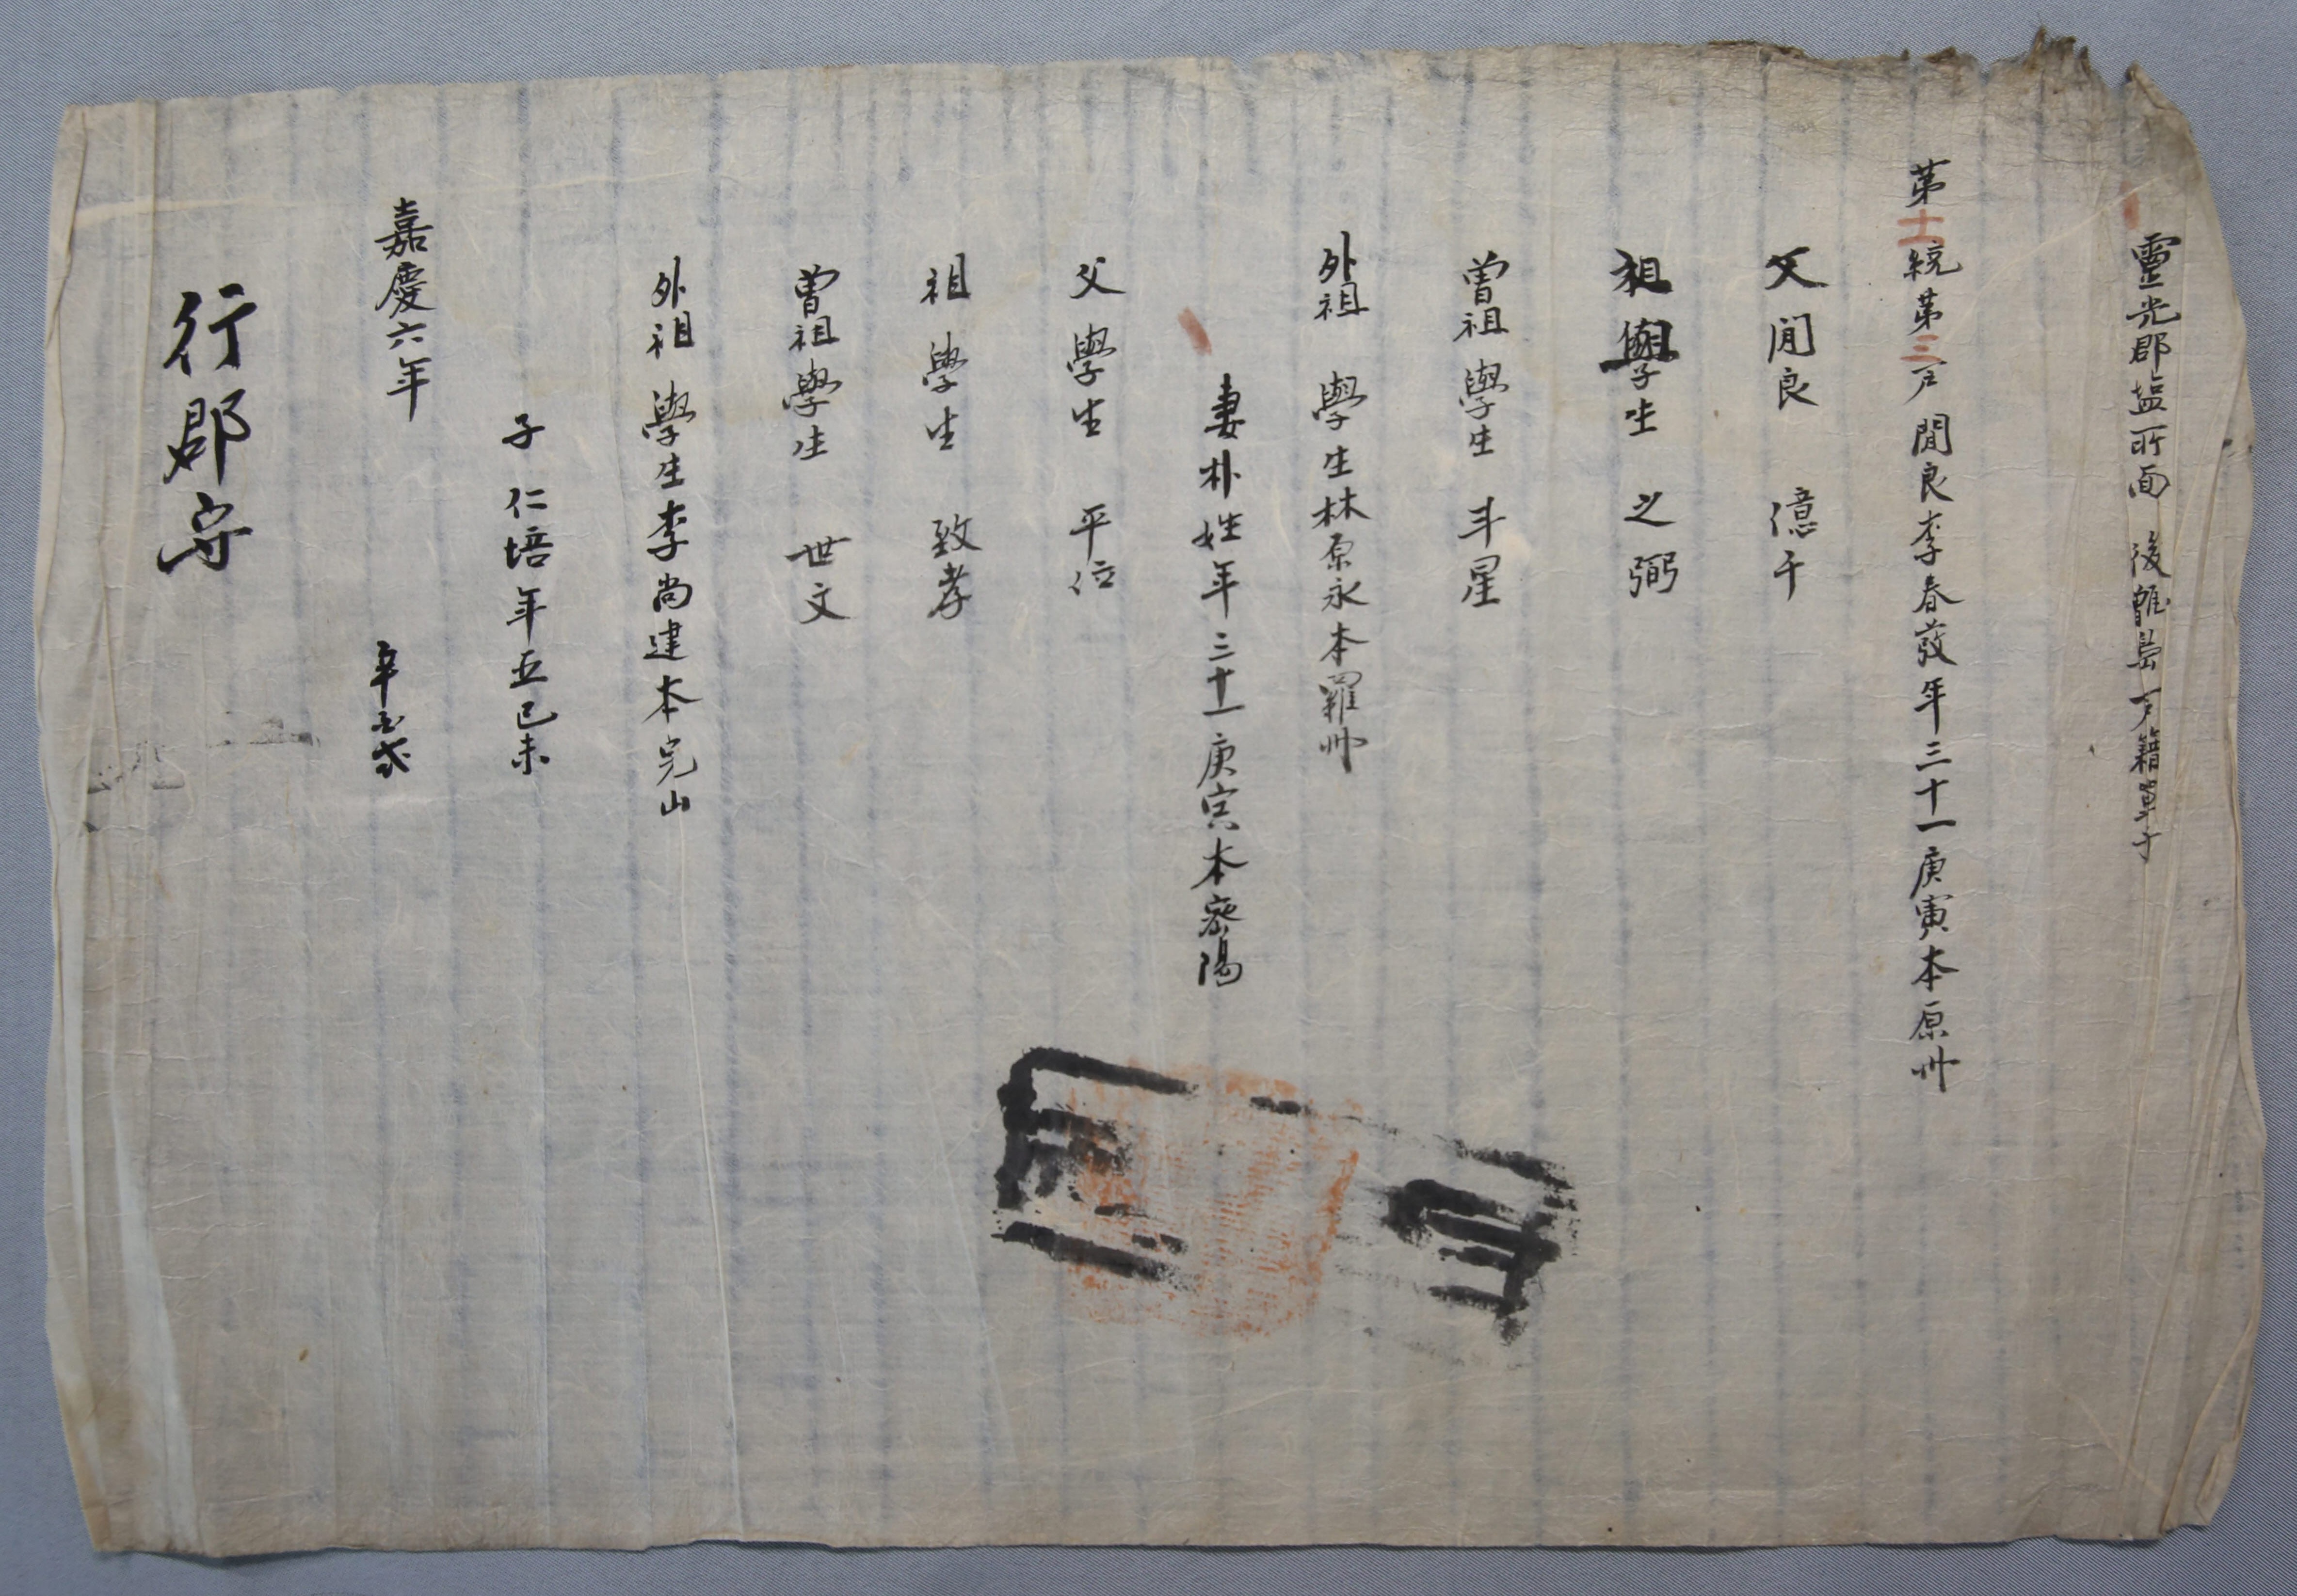 靈光郡塩所面 後甑島 戶籍單子
第十一統第三戶 閒良李春發年三十一庚寅本原州
父 閒良 億千
祖 學生 之弼
曾祖 學生 斗星
外祖 學生林原永本羅州
妻朴姓年三十一庚寅本密陽
父 學生 平位
祖 學生 致孝
曾祖學生 世文
外祖 學生李尚建本完山
子 仁培年五己未
嘉慶六年
行郡守